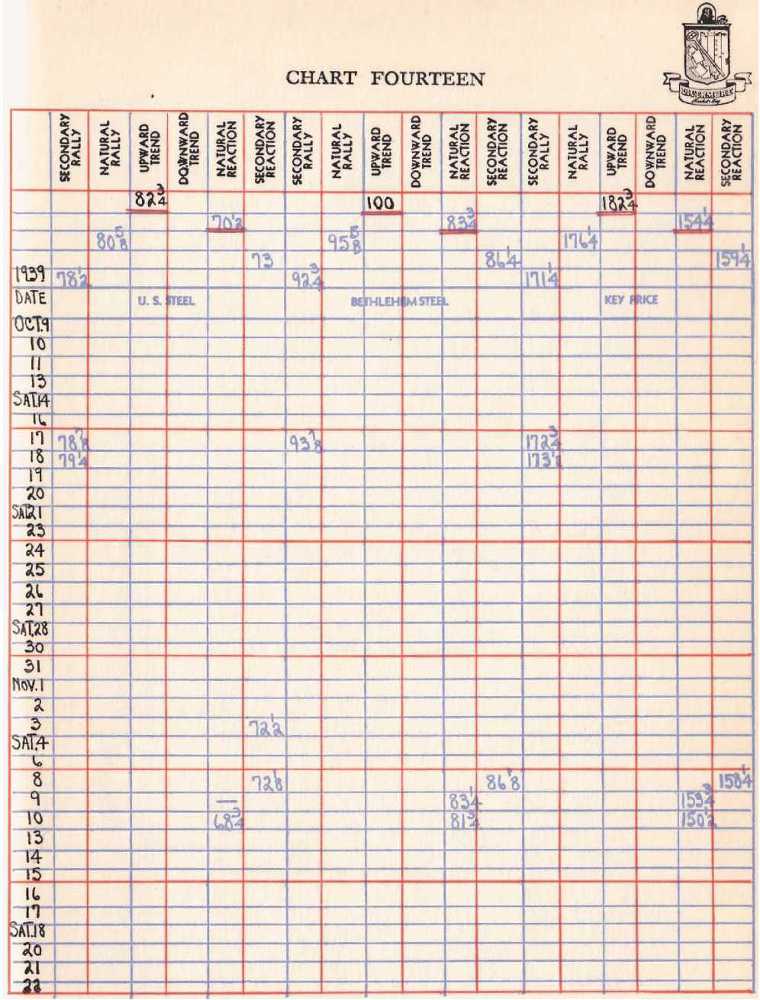 LIVERMORE
CHART FOURTEEN
SECONDARY RALLY NATURAL RALLY UPWARD TREND DOWNWARD TREND NATURAL REACTION SECONDARY REACTION SECONDARY RALLY NATURAL RALLY UPWARD TREND DOWNWARD TREND NATURAL REACTION SECONDARY REACTION SECONDARY RALLY NATURAL RALLY UPWARD TREND DOWNWARD TREND NATURAL REACTION SECONDARY REACTION
82 3/4 100 182 3/4
70 1/2 83 3/4 154 1/4
80 5/8 95 5/8 176 1/4
73 86 1/4 159 1/4
1939 78 1/2 92 3/4 171 1/4
DATE U. S. STEEL BETHLEHEM STEEL KEY PRICE
OCT.9
10
11
13
SAT.14
16
17 78 7/8 93 7/8 172 3/4
18 79 1/4 173 1/8
19
20
SAT.21
23
24
25
26
27
SAT.28
30
31
NOV.1
2
3 72 1/2
SAT.4
6
8 72 1/8 86 1/8 158 1/4
9 — 83 1/4 153 3/4
10 68 3/4 81 3/4 150 1/2
13
14
15
16
17
SAT.18
20
21
22